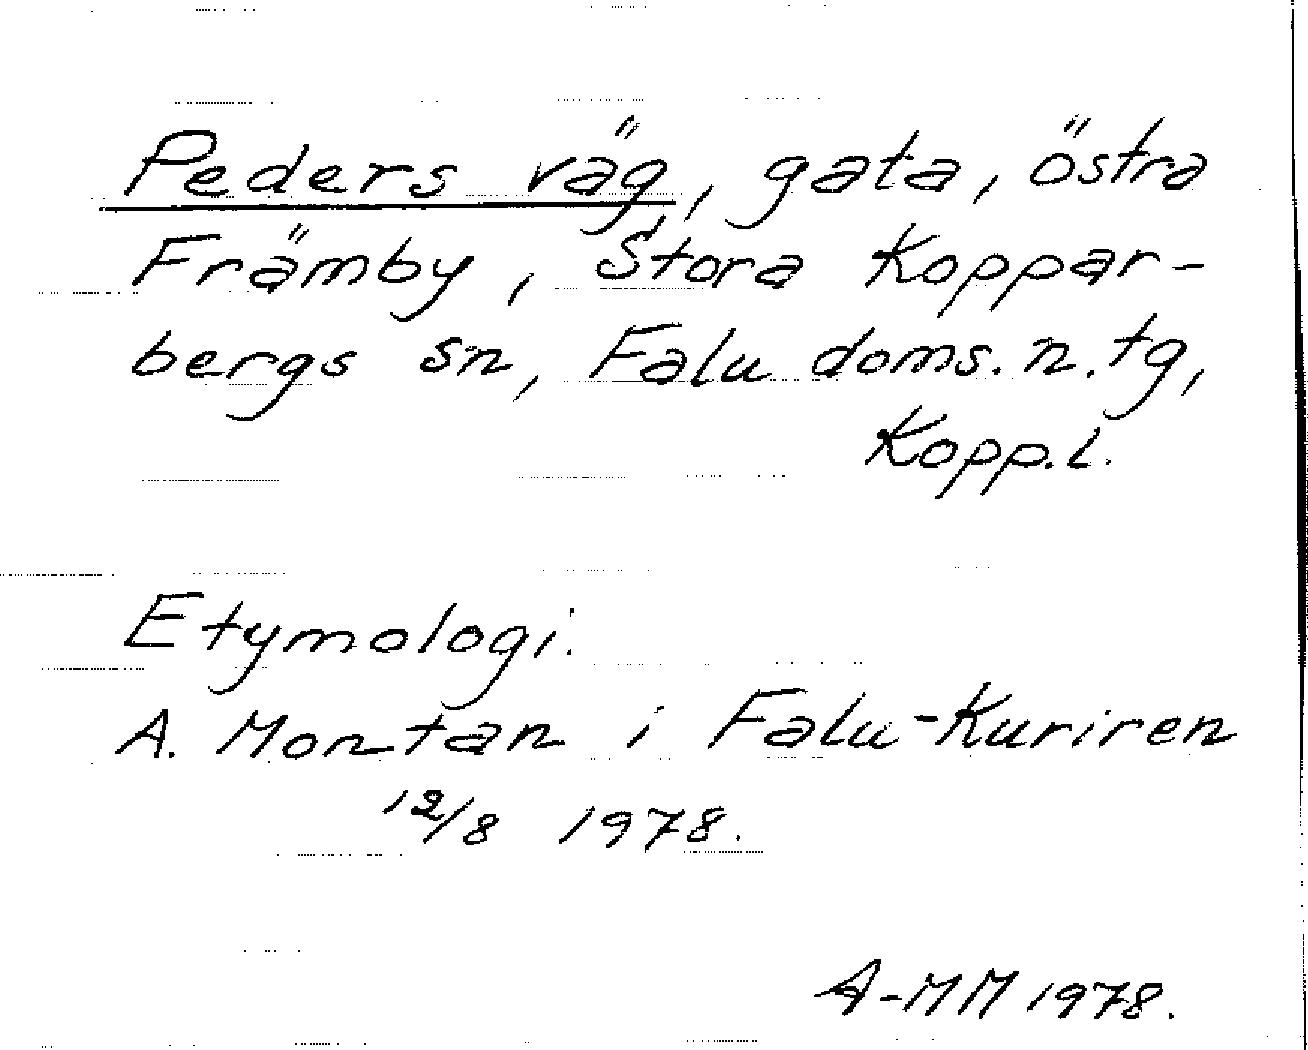 Peders väg, gata, östra
Främby, Stora Koppar-
bergs sn, Falu doms.n.tg,
Kopp.l.
Etymologi.
A. Montan i Falu-Kuriren
12/8 1978.
A-MM 1978.